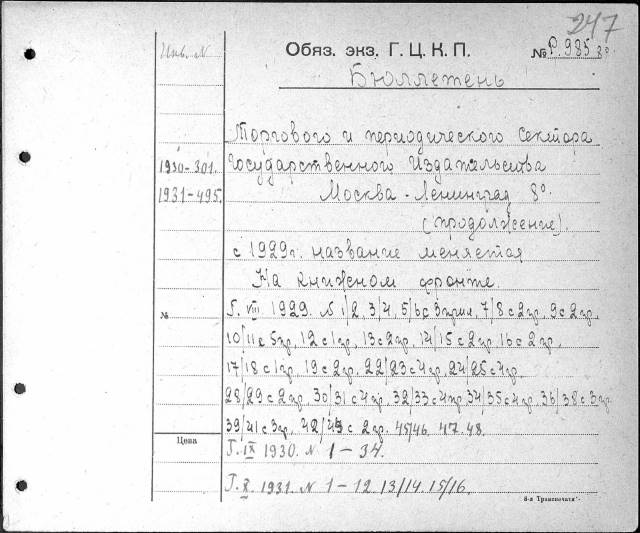 247
Инв. N
Обяз. экз. Г. Ц. К. П.
№ Р.985 8°
Бюллетень
Торгового и периодического Сектора
1930-301.
Государственного Издательства
1931-495.
Москва - Ленинград 8°.
(продолжение).
с 1929г. название меняется
На книжном фронте.
№
Г. VIII 1929. N 1/2, 3/4, 5/6 с 3 прил, 7/8 с 2 пр, 9 с 2 пр,
10/11 с 5 пр, 12 с 1 пр, 13 с 2 пр, 14/15 с 2 пр. 16 с 2 пр,
17/18 с 1 пр, 19 с 2 пр, 22/23 с 4 пр, 24/25 с 4 пр.
28/29 с 2 пр, 30/31 с 4 пр. 32/33 с 4 пр 34/35 с 4 пр, 36/38 с 3 пр.
39/41 с 3 пр, 42/43 с 2 пр. 45/46. 47. 48.
Цена
Г. IX 1930. N 1-34.
Г. X. 1931. N 1-12. 13/14. 15/16.
8-я Транспечати